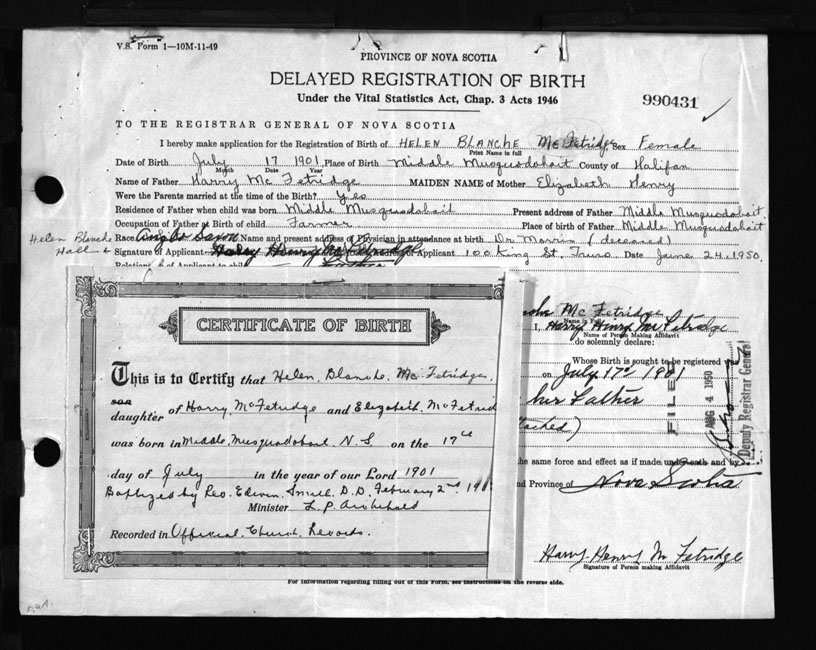 V.S. Form 1—10M-11-49
PROVINCE OF NOVA SCOTIA
DELAYED REGISTRATION OF BIRTH
Under the Vital Statistics Act, Chap. 3 Acts 1946
990431
TO THE REGISTRAR GENERAL OF NOVA SCOTIA
I hereby make application for the Registration of Birth of HELEN BLANCHE McFetridge, Sex Female
Print Name in full
Date of Birth July 17 1901, Place of Birth Middle Musquodoboit County of Halifax
Month Date Year
Name of Father Harry McFetridge MAIDEN NAME of Mother Elizabeth Henry
Were the Parents married at the time of the Birth? Yes
Residence of Father when child was born Middle Musquodoboit Present address of Father Middle Musquodoboit
Occupation of Father at Birth of Child Farmer Place of birth of Father Middle Musquodoboit
Helen Blanche
Race Anglo Saxon Name and present address of Physician in attendance at birth Dr (deceased)
Signature of Applicant Harry Henry McFetridge of Applicant 100 King St. Truro Date June 24, 1950.
McFetridge
I, Harry Henry McFetridge
Name of Person Making Affidavit
do solemnly declare:
Whose Birth is sought to be registered
on July 17th 1901
her Father
he same force and effect as if made under oath and by
nd Province of Nova Scotia
Harry Henry McFetridge
Signature of Person making Affidavit
FILED
AUG 4 1950
Deputy Registrar General
CERTIFICATE OF BIRTH
This is to Certify that Helen Blanche McFetridge
son
daughter of Harry McFetridge and Elizabeth McFetrid
was born in Middle Musquodoboit N.S on the 17th
day of July in the year of our Lord 1901
Baptized by Edwin Smith D.D. February 2nd
Minister L.P. Archibald
Recorded in Official Church Records.
For information regarding filling out of this Form, see instructions on the reverse side.